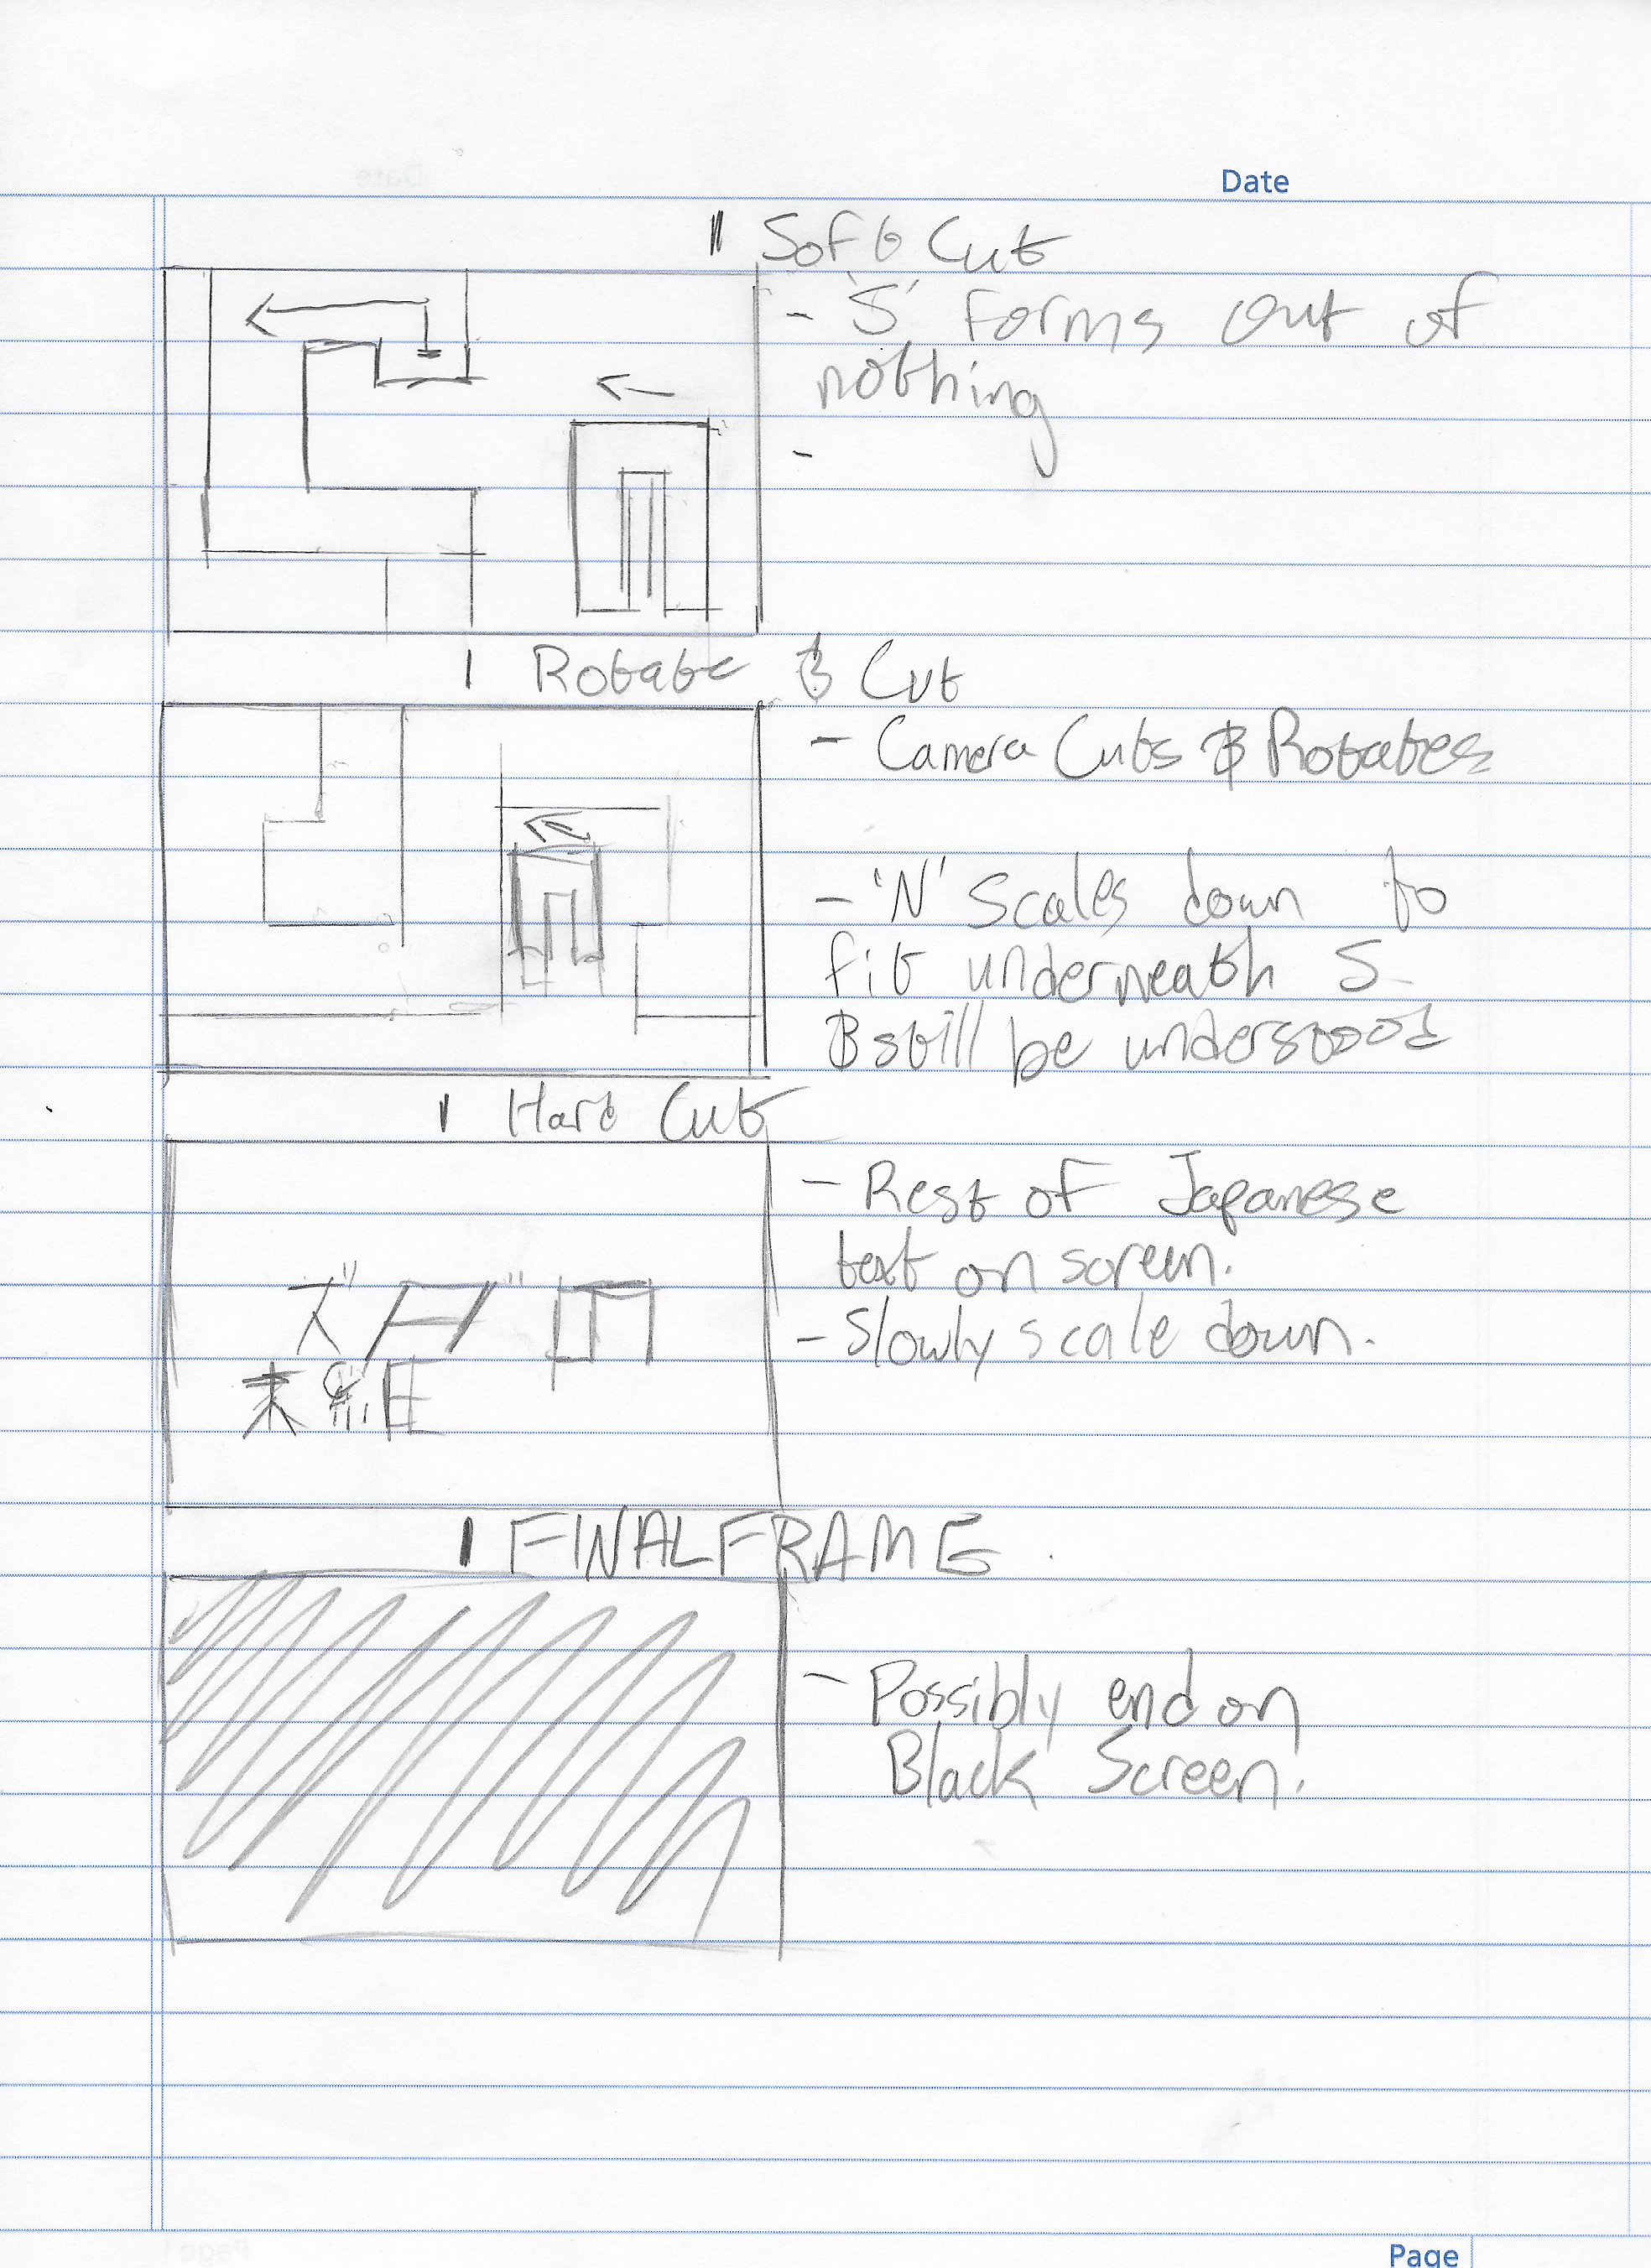 Date
Soft Cut
- 'S' Forms Out of
nothing
-
Rotate & Cut
- Camera Cuts & Rotates
- 'N' Scales down to
fit underneath S
& still be understood
Hard Cut
- Rest of Japanese
text on screen.
- Slowly scale down.
FINAL FRAME
- Possibly end on
Black Screen.
Page